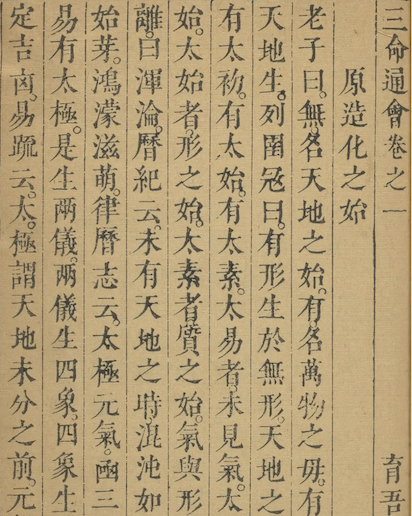 三命通會卷之一　育吾
原造化之始
老子曰。無名天地之始。有名萬物之毋。有
天地生。列圉冦曰。有形生於無形。天地之
有太初。有太始。有太素。太易者。未見氣。太
始。太始者。形之始。太素者。質之始。氣與形
離。曰渾淪。曆紀云。未有天地之時。混沌如
始芽。鴻濛滋萌。律曆志云。太極元氣。函三
易有太極。是生兩儀。兩儀生四象。四象生
定吉凶。易疏云。太。極謂天地未分之前。元